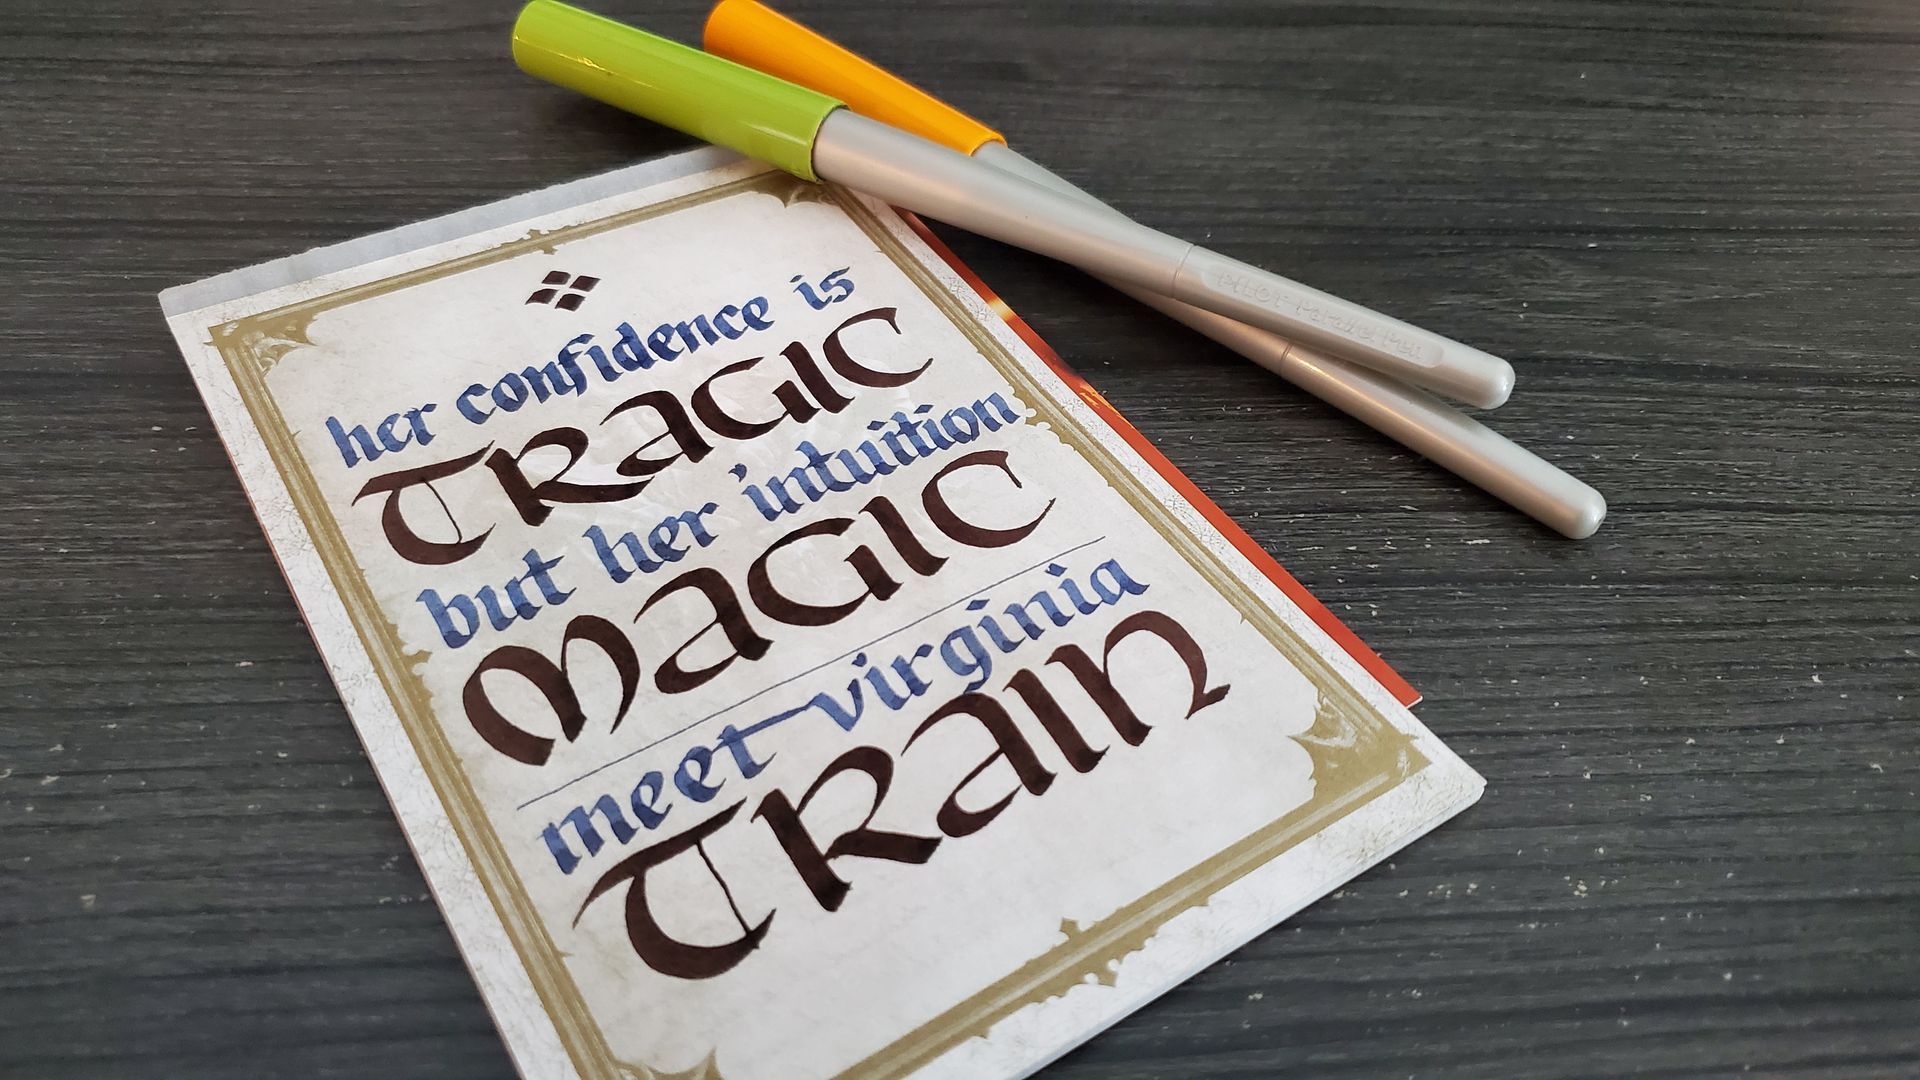 her confidence is
TRAGIC
but her intuition
MAGIC
meet virginia
TRAIN
PILOT Parallel Pen